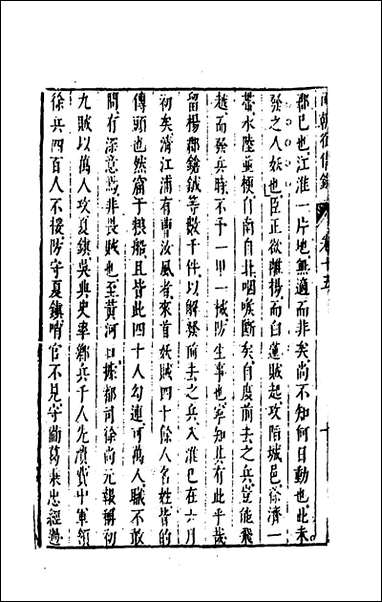 兩朝從信錄 卷十五 十
都已也江淮一片地無適而非矣尚不知何日動也此未
發之人妖也臣正欲離揚而白蓮賊起攻陷城邑徐濟一
帶水陸並梗自南自北咽喉斷矣自度前去之兵豈能飛
越而發兵時不予一甲一械防生事也寧知其有此乎哉
留楊郡鎗銃等數千件以解發前去之兵入淮已在六月
初矣清江浦有曹汝風者來首妖賊四十餘人名姓皆的
傳頭也然窟于粮船且皆此四十人勾連可萬人賊不敢
問有深意焉非畏賊也至黃河口據都司徐尚元報稱初
九賊以萬人攻夏鎮吳典史率鄉兵千人先潰費中軍領
徐兵四百人不接防守夏鎮哨官不見守勸葛來忠經過